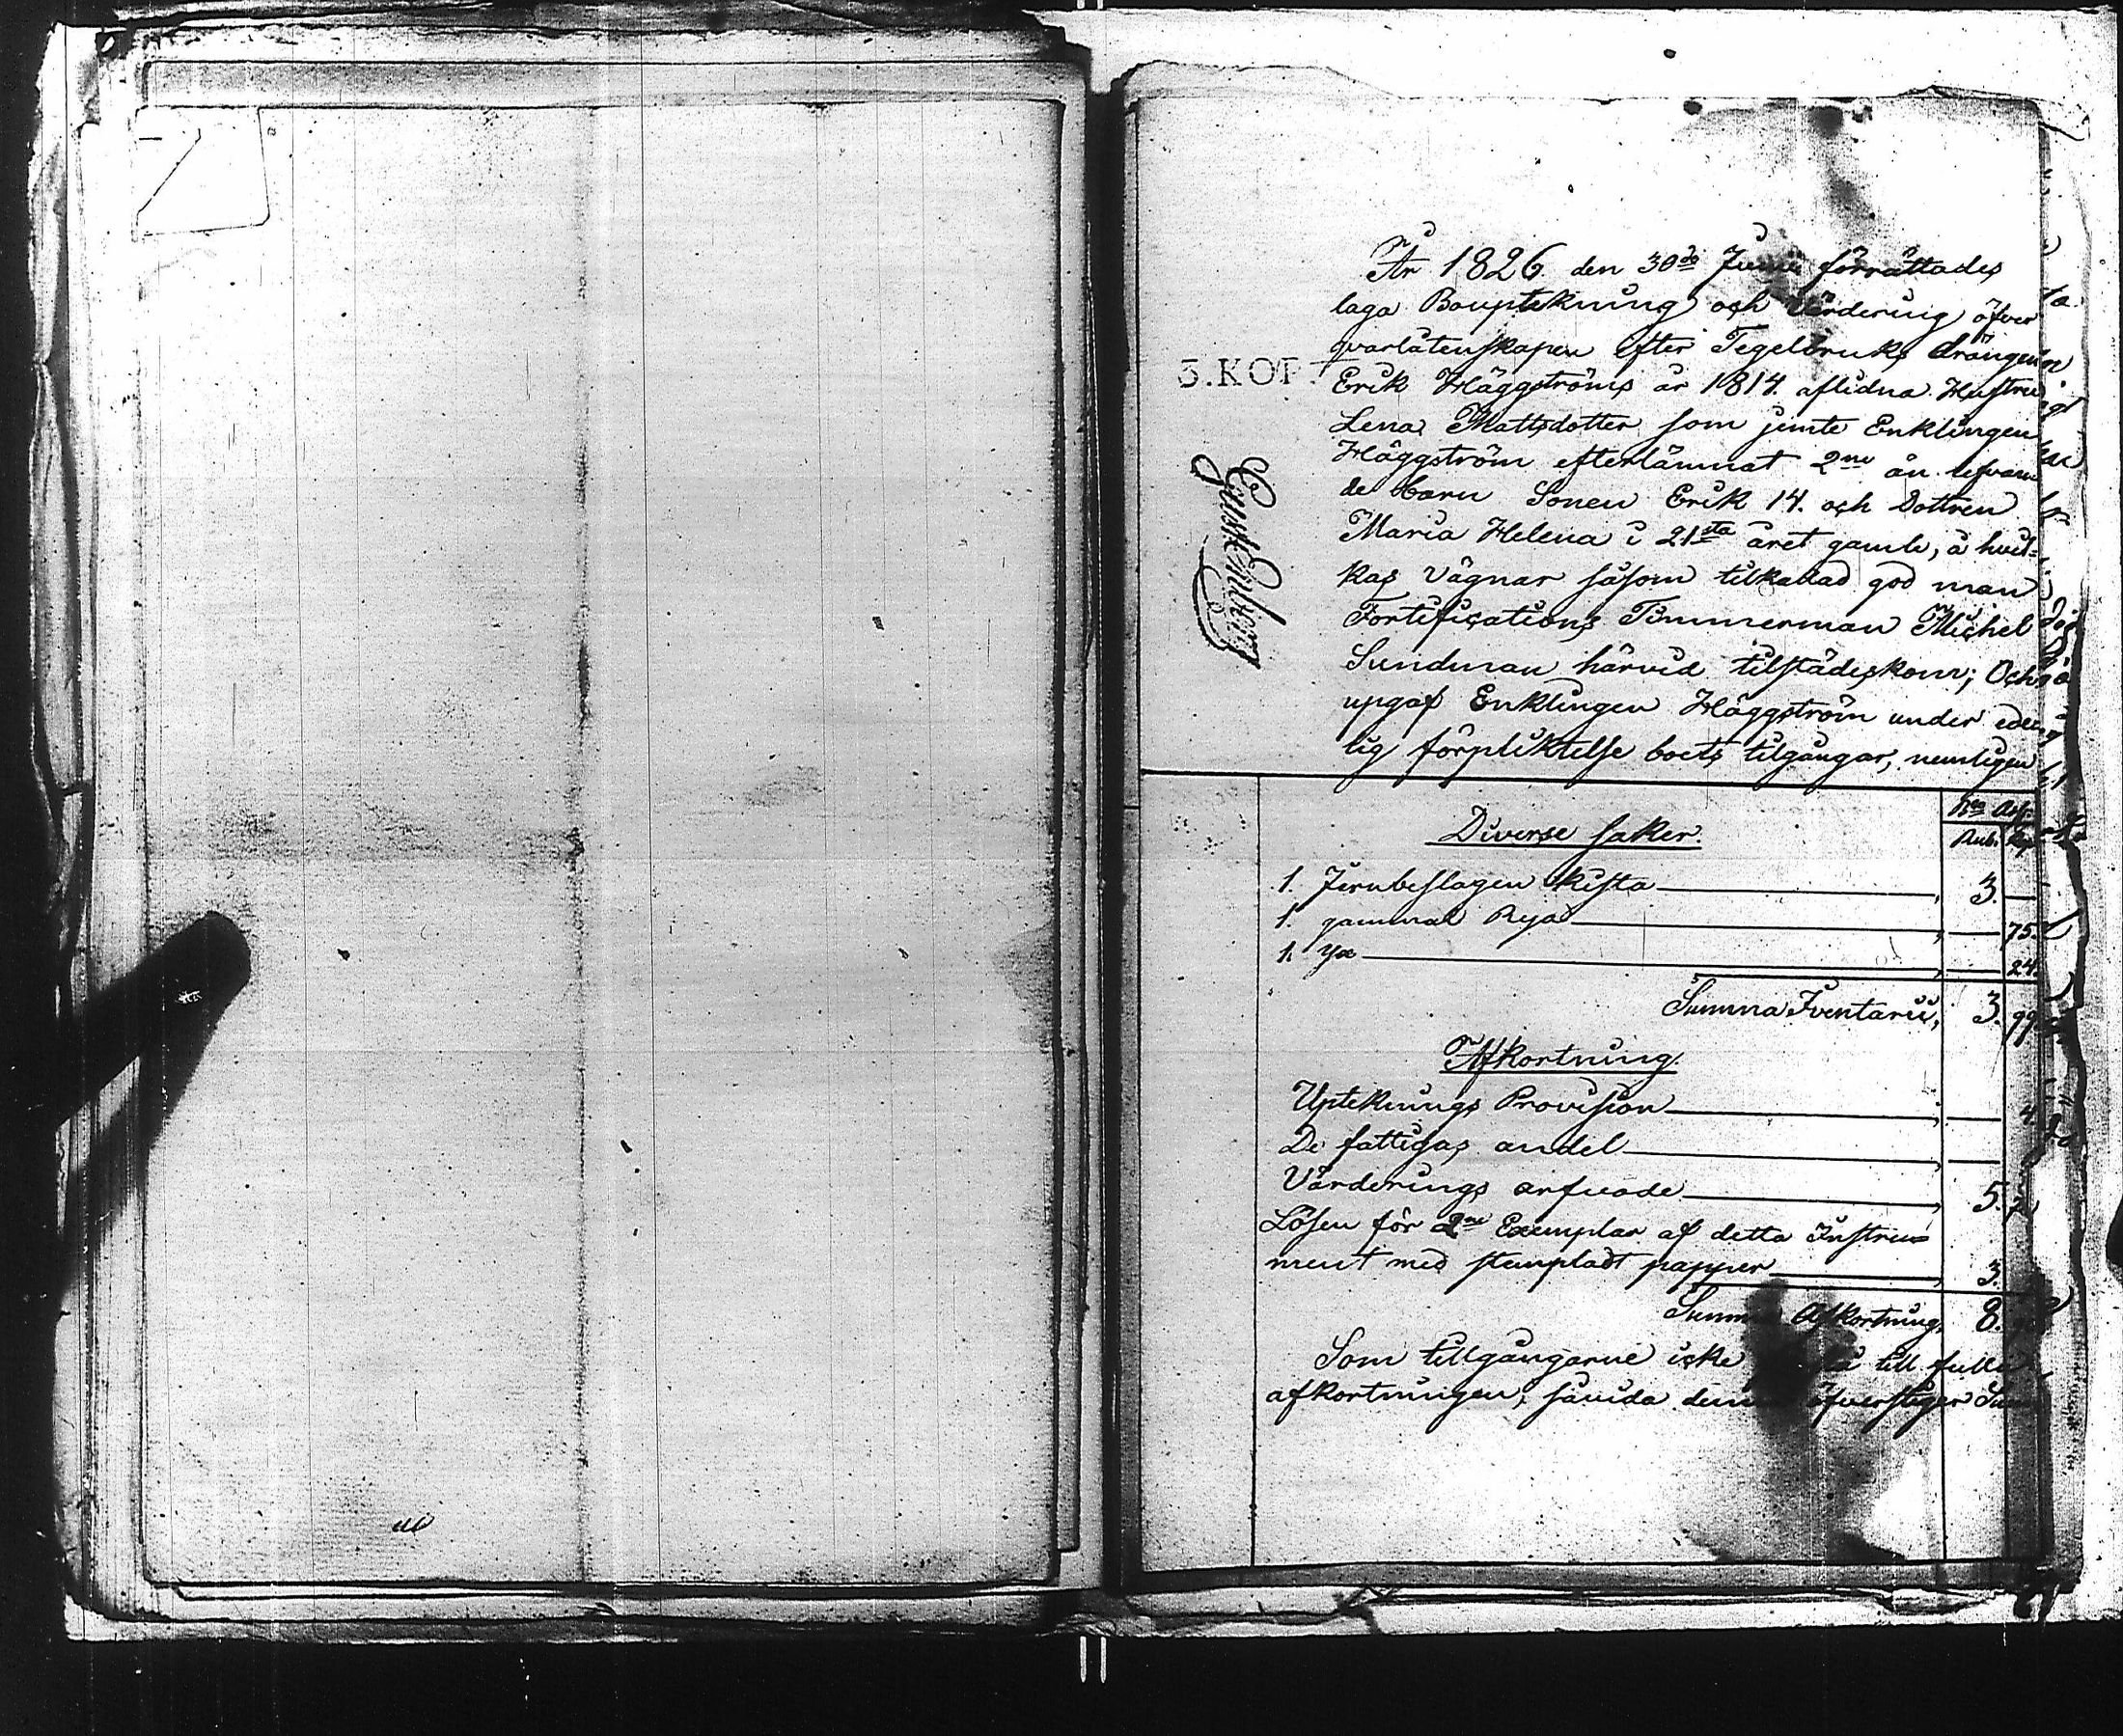 År 1826 den 30de Junii förrättades
laga Bouptekning och Värdering öfver
qvarlåtenskapen efter Tegelbruks drängen
3.KOP.
Erik Häggströms år 1814. aflidna Hustru
Lena Mattsdotter som jemte Enklingen
Häggström efterlämnat 2ne än lefvan
de barn Sonen Erik 14. och Dottren
Maria Helena i 21sta året gamle, å hvil-
kas vägnar såsom tilkallad god man
Fortifications Timmerman Michel
Sundman härvid tilstädeskom; Och
upgaf Enklingen Häggström under ede
lig förpliktelse boets tilgångar, nemligen
Rub.
Diverse saker.
1. Jernbeslagen kista 3. —
1. gammal Rya — 75.
1. Yx — 24.
Summa Iventarii, 3. 99
Afkortning.
Upteknings Provision — 4
De fattigas andel —
Värderings arfvode 5.
Lösen för 2ne Exemplar af detta Instru-
ment med stempladt papper 3.
Summa Afkortning, 8.
Som tillgångarne icke till fulla
afkortningen, såvida den öfverstiger